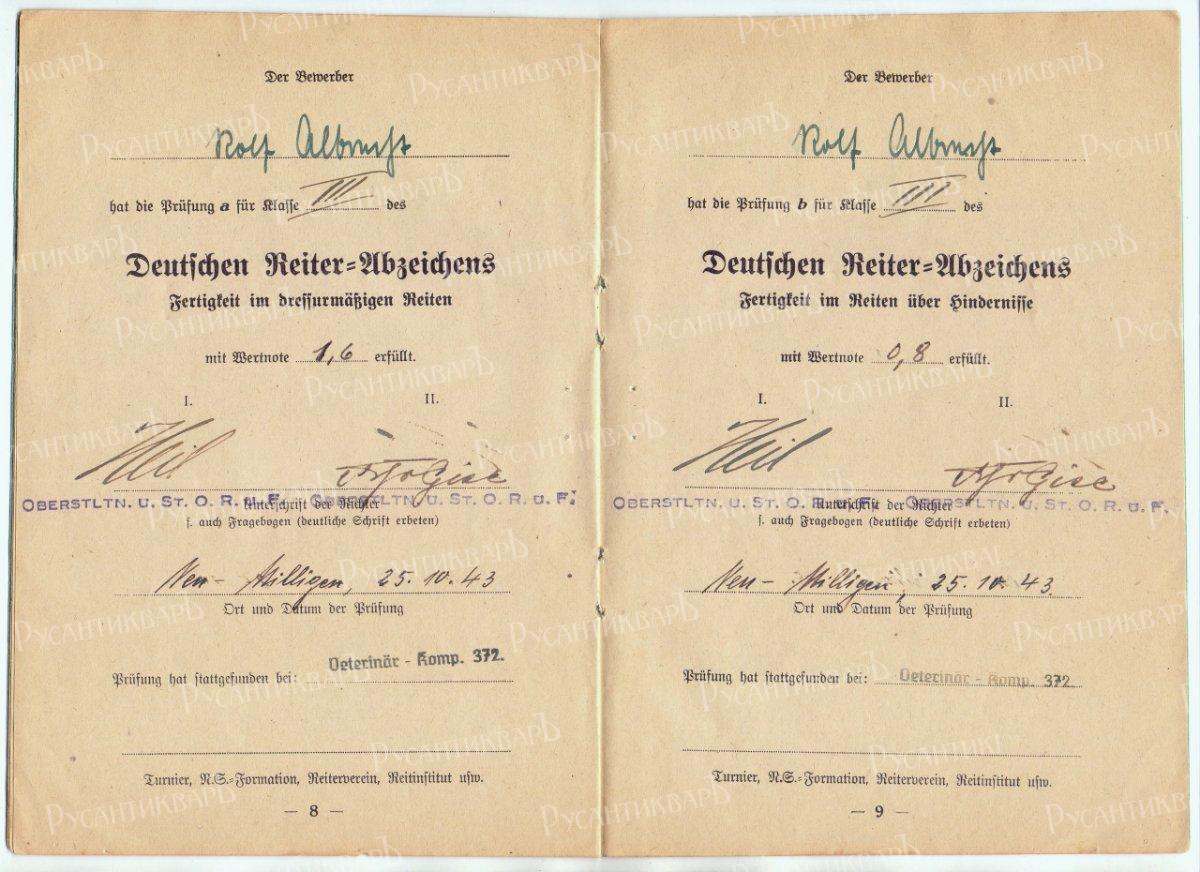 Der Bewerber
Rolf Albrecht
hat die Prüfung a für Klasse III des
Deutschen Reiter=Abzeichens
Fertigkeit im dressurmäßigen Reiten
mit Wertnote 1,6 erfüllt.
I. II.
Heil
OBERSTLTN. U. ST. O. R. U. F. OBERSTLTN. U. ST. O. R. U. F.
Unterschrift der Richter
s. auch Fragebogen (deutliche Schrift erbeten)
Neu-Milligen, 25.10.43
Ort und Datum der Prüfung
Prüfung hat stattgefunden bei: Veterinär - Komp. 372.
Turnier, N.S.=Formation, Reiterverein, Reitinstitut usw.
— 8 —
Der Bewerber
Rolf Albrecht
hat die Prüfung b für Klasse III des
Deutschen Reiter=Abzeichens
Fertigkeit im Reiten über Hindernisse
mit Wertnote 0,8 erfüllt.
I. II.
Heil
OBERSTLTN. U. ST. O. R. U. F. OBERSTLTN. U. ST. O. R. U. F.
Unterschrift der Richter
s. auch Fragebogen (deutliche Schrift erbeten)
Neu-Milligen, 25.10.43.
Ort und Datum der Prüfung
Prüfung hat stattgefunden bei: Veterinär - Komp. 372
Turnier, N.S.=Formation, Reiterverein, Reitinstitut usw.
— 9 —
РУСАНТИКВАРЪ